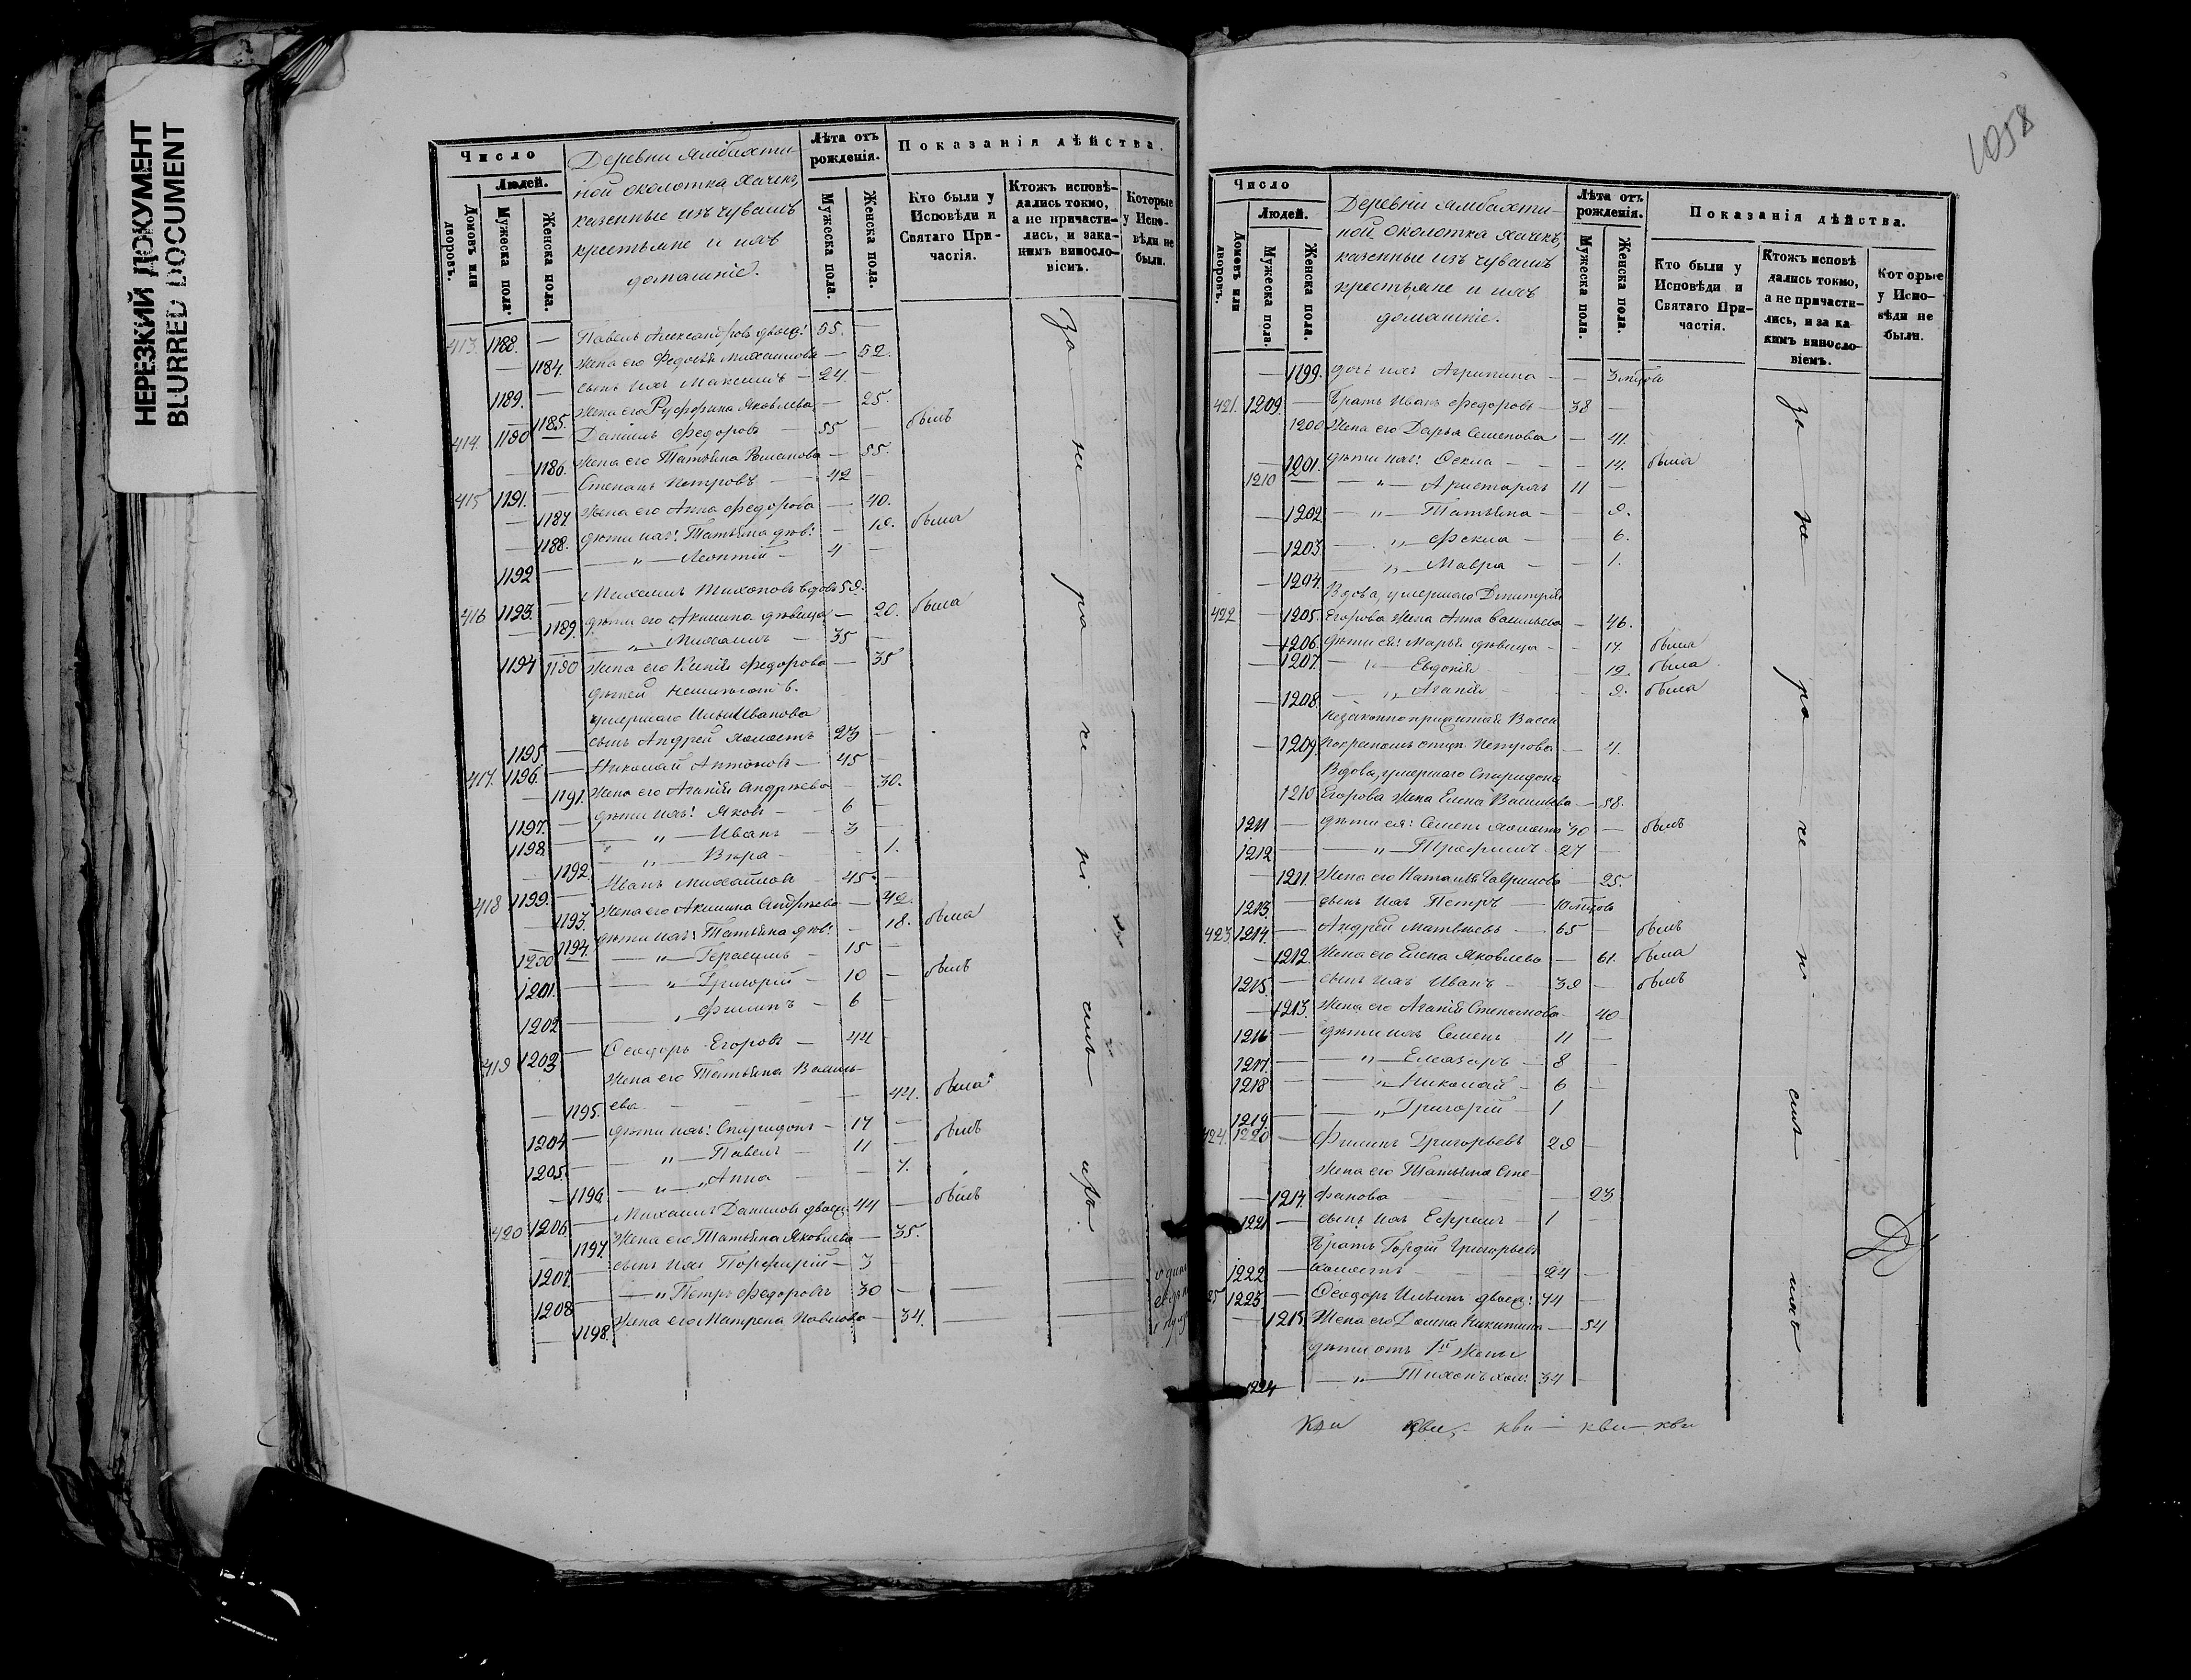 НЕРЕЗКИЙ ДОКУМЕНТ
BLURRED DOCUMENT
Число
Людей.
Домовъ или дворовъ.
Мужеска пола
Женска пола.
Деревни Ямбахти-
ной околотка Хачекъ,
казенные изъ чувашъ
крестьяне и ихъ
домашніе.
Лѣта отъ рожденія.
Мужеска пола.
Женска пола.
Показанія дѣйства.
Кто были у Исповѣди и Святаго При-частія.
Ктожъ исповѣ-дались токмо, а не причасти-лись, и зака-кимъ винослo-віемъ.
Которые у Испо-вѣди не были.
413. 1188. — Павелъ Александровъ двоеж: 55. —
— 1184. Жена его Федосья Михаилова — 52.
1189. — сынъ ихъ Максимъ — 24. —
— 1185. Жена его Руффина Яковлева — 25.
414. 1190 — Даніилъ Федоровъ — 55 — былъ
— 1186. Жена его Татьяна Романова — 55.
415 1191. — Степанъ Петровъ — 42 —
— 1187. Жена его Анна Федорова — 40.
— 1188. дѣти ихъ: Татьяна дѣв: — 19. была
1192 — „ — Леонтій — 4 —
416 1193. — Михаилъ Тихоновъ вдовъ 59.
— 1189. дѣти его Акилина дѣвица — 20. была
1194 — „ — Михаилъ — 35 —
1190 Жена его Ксенія Федорова — 35
дѣтей неимѣютъ.
умершаго Ильи Иванова
1195 — сынъ Андрей холостъ 23 —
417. 1196. — Николай Антоновъ — 45 —
— 1191. Жена его Агапія Андреева — 30.
1197. — дѣти ихъ: Яковъ — 6 —
1198. — „ — Иванъ — 3 —
— 1192. „ — Вѣра — 1.
418 1199. — Иванъ Михайловъ — 45 —
— 1193. Жена его Акилина Андреева — 42.
— 1194. дѣти ихъ: Татьяна дѣв: — 18. была
1200 — „ — Герасимъ — 15 —
1201. — „ — Григорій — 10 — былъ
1202 — „ Филипъ — 6 —
419 1203 — Ѳеодоръ Егоровъ — 44
Жена его Татьяна Василь-
— 1195. ева — 44. была
1204 — дѣти ихъ: Спиридонъ — 17 —
1205. — „ — Павелъ — 11 — былъ
— 1196. — „ — Анна — 7.
420 1206. — Михаилъ Даниловъ двоеж: 44 — былъ
— 1197. Жена его Татьяна Яковлева — 35.
1207. — сынъ ихъ Порфирій — 3
1208 — „ Петръ Федоровъ 30 —
— 1198. Жена его Матрена Павлова — 34.
За нерачен
1058
Число
Людей.
Домовъ или дворовъ.
Мужеска пола.
Женска пола.
Деревни Ямбахти-
ной околотка Хачекъ,
казенные изъ чувашъ
крестьяне и ихъ
домашніе.
Лѣта отъ рожденія.
Мужеска пола.
Женска пола.
Показанія дѣйства.
Кто были у Исповѣди и Святаго При-частія.
Ктожъ исповѣ дались токмо, а не причасти-лись, и за ка кимъ винослo-віемъ.
Которые у Испо-вѣди не были.
— 1199. дочь ихъ Агрипина — — 3 мѣсяц
421. 1209. — Братъ Иванъ Федоровъ — 38 —
1200 Жена его Дарья Семенова — 41.
— 1201. дѣти ихъ: Ѳекла — — 14. была
1210 — „ — Аристархъ 11 —
— 1202 — „ — Татьяна — 9.
— 1203. — „ — Фекла — 6.
— 1204. — „ — Мавра — 1.
Вдова, умершаго Димитрія
422 — 1205. Егорова жена Анна Васильева — 46.
— 1206. дѣти ея: Марья дѣвица — 17. была
— 1207. — „ — Евдокія — 12. была
1208. — „ Агапія — 9. была
Незаконноприжитая Васси
— 1209. по крестномъ отцу Петрова — 4.
Вдова, умершаго Спиридона
1210 Егорова жена Елена Васильева — 58.
1211 — дѣти ея: Семенъ холостъ 30 — былъ
1212 — „ — Трофимъ — 27
— 1211. Жена его Наталья Гаврилова — 25.
1213. — сынъ ихъ Петръ — 10 мѣсяц
423 1214. — Андрей Матвѣевъ — 65 — былъ
— 1212. Жена его Елена Яковлева — 61. была
1215. — сынъ ихъ Иванъ — 39 — былъ
— 1213. Жена его Агапія Степанова — 40
1216 — дѣти ихъ Семенъ 11 —
1217. — „ — Елеазаръ — 8 —
1218 — „ Николай — 6
1219 — „ Григорій — 1
424. 1220 — Филипъ Григорьевъ 29 —
Жена его Татьяна Сте-
— 1214. фанова — 23
1221 — сынъ ихъ Ефремъ — 1 —
Братъ Гордій Григорьевъ
1222 — холостъ — 24 —
25 1223. — Ѳеодоръ Ильинъ двоеж: 44 —
— 1215. Жена его Домна Никитина — 54
дѣти отъ 1й жены
1224 — „ — Тихонъ хол: 34 —